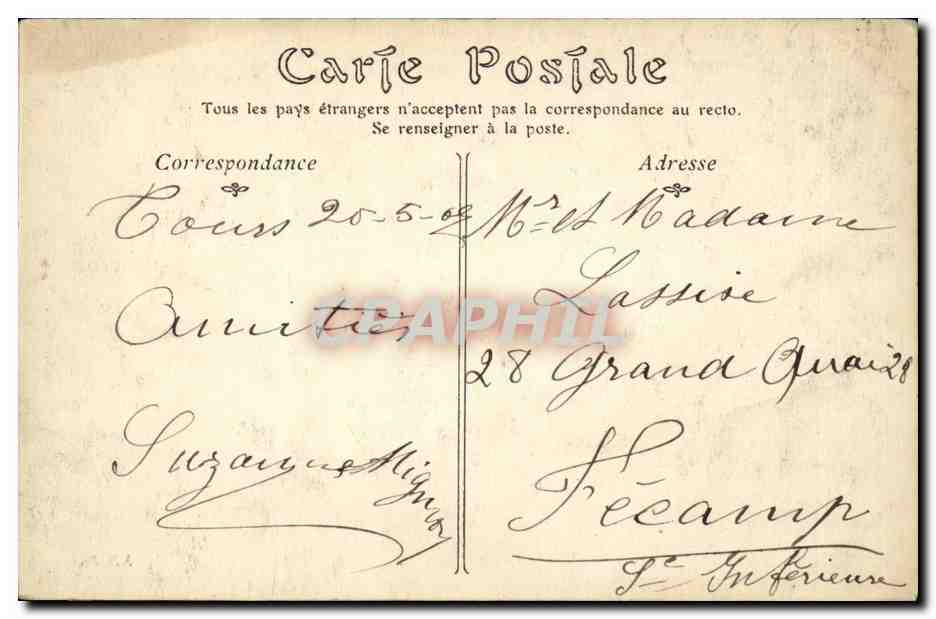 Carte Postale
Tous les pays étrangers n'acceptent pas la correspondance au recto.
Se renseigner à la poste.
Correspondance
Tours 20-5-09
Amitiés
Suzanne Mignon
Adresse
Mr et Madame
Lassire
28 Grand Quai 28
Fécamp
Sne Inférieure
CPAPHIL